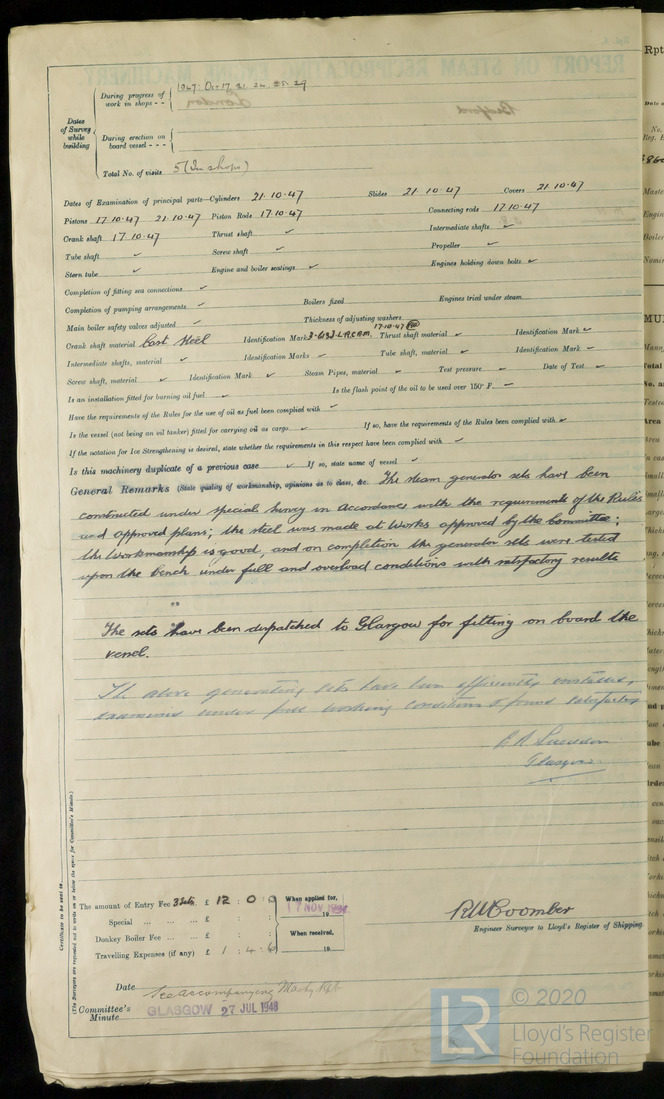 REPORT ON STEAM RECIPROCATING ENGINE MACHINERY.
Dates of Survey while building
During progress of work in shops - - 1947: Oct 17. 21. 24. 25. 29
London
During erection on board vessel - - -
Total No. of visits 5 (In shops)
Dates of Examination of principal parts—Cylinders 21·10·47 Slides 21·10·47 Covers 21·10·47
Pistons 17·10·47 21·10·47 Piston Rods 17·10·47 Connecting rods 17·10·47
Crank shaft 17·10·47 Thrust shaft ✓ Intermediate shafts ✓
Tube shaft ✓ Screw shaft ✓ Propeller ✓
Stern tube ✓ Engine and boiler seatings ✓ Engines holding down bolts ✓
Completion of fitting sea connections ✓
Completion of pumping arrangements ✓ Boilers fixed Engines tried under steam
Main boiler safety valves adjusted ✓ Thickness of adjusting washers
Crank shaft material Cast Steel Identification Mark 17·10·47 Thrust shaft material ✓ Identification Mark ✓
Intermediate shafts, material ✓ Identification Marks ✓ Tube shaft, material ✓ Identification Mark ✓
Screw shaft, material ✓ Identification Mark ✓ Steam Pipes, material ✓ Test pressure ✓ Date of Test ✓
Is an installation fitted for burning oil fuel ✓ Is the flash point of the oil to be used over 150° F. ✓
Have the requirements of the Rules for the use of oil as fuel been complied with ✓
Is the vessel (not being an oil tanker) fitted for carrying oil as cargo ✓ If so, have the requirements of the Rules been complied with ✓
If the notation for Ice Strengthening is desired, state whether the requirements in this respect have been complied with ✓
Is this machinery duplicate of a previous case ✓ If so, state name of vessel ✓
General Remarks (State quality of workmanship, opinions as to class, &c. The steam generator sets have been
constructed under special survey in accordance with the requirements of the Rules
and approved plans; the steel was made at Works approved by the Committee;
the Workmanship is good, and on completion the generator sets were tested
upon the bench under full and overload conditions with satisfactory results
The sets have been dispatched to Glasgow for fitting on board the
vessel.
The above generating sets have been efficiently installed,
examined under full working conditions & found satisfactory
Glasgow.
Certificate to be sent to
(The Surveyors are requested not to write on or below the space for Committee's Minute.)
The amount of Entry Fee 3 Sets. £ 12 : 0 : 0 When applied for,
Special ... ... ... £ : : 17 NOV 19
Donkey Boiler Fee ... ... £ : : When received,
Travelling Expenses (if any) £ 1 : 4 : 6 19
R W Coomber
Engineer Surveyor to Lloyd's Register of Shipping
Date See accompanying Machy Rpt
Committee's Minute GLASGOW 27 JUL 1948
LR © 2020
Lloyd's Register
Foundation